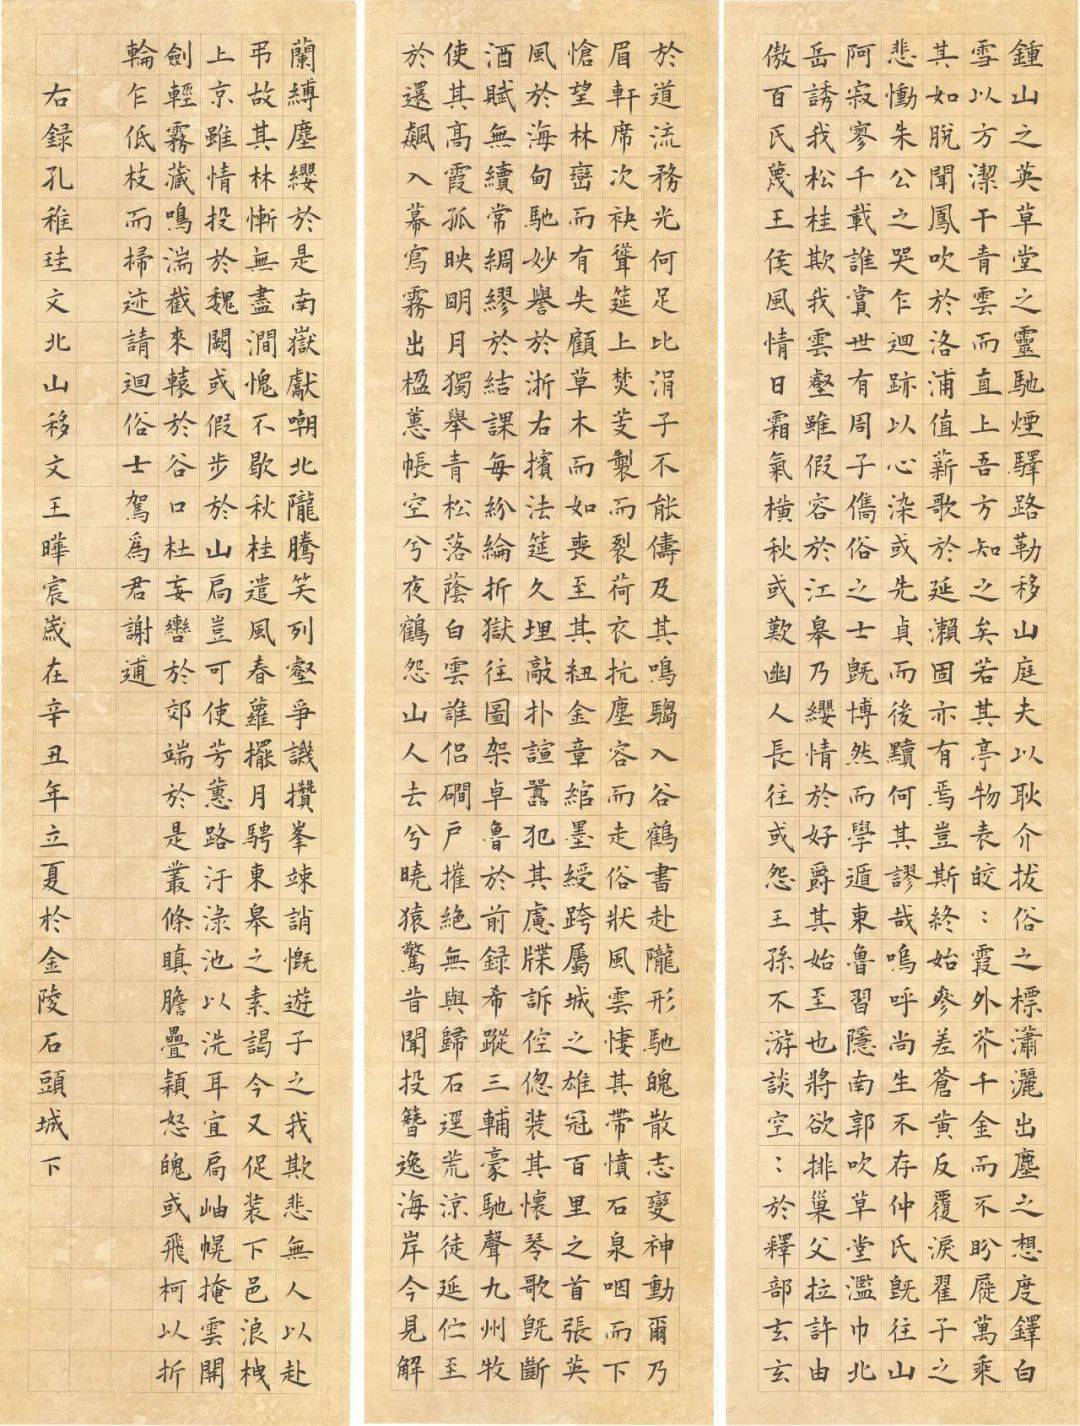 鍾山之英草堂之靈馳煙驛路勒移山庭夫以耿介拔俗之標瀟灑出塵之想度鐸白
雪以方潔干青雲而直上吾方知之矣若其亭物表皎：霞外芥千金而不盼屣萬乘
其如脫聞鳳吹於洛浦值薪歌於延瀨固亦有焉豈斯終始參差蒼黃反覆淚翟子之
悲慟朱公之哭乍迴跡以心染或先貞而後黷何其謬哉嗚呼尚生不存仲氏既往山
阿寂寥千載誰賞世有周子儁俗之士既博然而學遁東魯習隱南郭吹草堂濫巾北
岳誘我松桂欺我雲壑雖假容於江皋乃纓情於好爵其始至也將欲排巢父拉許由
傲百氏蔑王侯風情日霜氣橫秋或歎幽人長往或怨王孫不游談空：於釋部玄玄
於道流務光何足比涓子不能儔及其鳴騶入谷鶴書赴隴形馳魄散志變神動爾乃
眉軒席次袂聳筵上焚芰製而裂荷衣抗塵容而走俗狀風雲悽其帶憤石泉咽而下
愴望林巒而有失顧草木而如喪至其紐金章綰墨綬跨屬城之雄冠百里之首張英
風於海甸馳妙譽於浙右擯法筵久埋敲扑諠囂犯其慮牒訴倥傯裝其懷琴歌既斷
酒賦無續常綢繆於結課每紛綸折獄往圖架卓魯於前録希蹤三輔豪馳聲九州牧
使其高霞孤映明月獨舉青松落蔭白雲誰侶磵戶摧絕無與歸石逕荒涼徒延佇至
於還飆入幕寫霧出楹蕙帳空兮夜鶴怨山人去兮曉猿驚昔聞投簪逸海岸今見解
蘭縛塵纓於是南嶽獻嘲北隴騰笑列壑爭譏攢峯竦誚慨遊子之我欺悲無人以赴
弔故其林慚無盡澗愧不歇秋桂遣風春蘿擺月騁東皋之素謁今又促装下邑浪栧
上京雖情投於魏闕或假步於山扃豈可使芳蕙路汙淥池以洗耳宜扃岫幌掩雲開
劍輕霧藏鳴湍截來轅於谷口杜妄轡於郊端於是叢條瞋膽疊穎怒魄或飛柯以折
輪乍低枝而掃迹請迴俗士駕爲君謝逋
右録孔稚珪文北山移文王曄宸歲在辛丑年立夏於金陵石頭城下